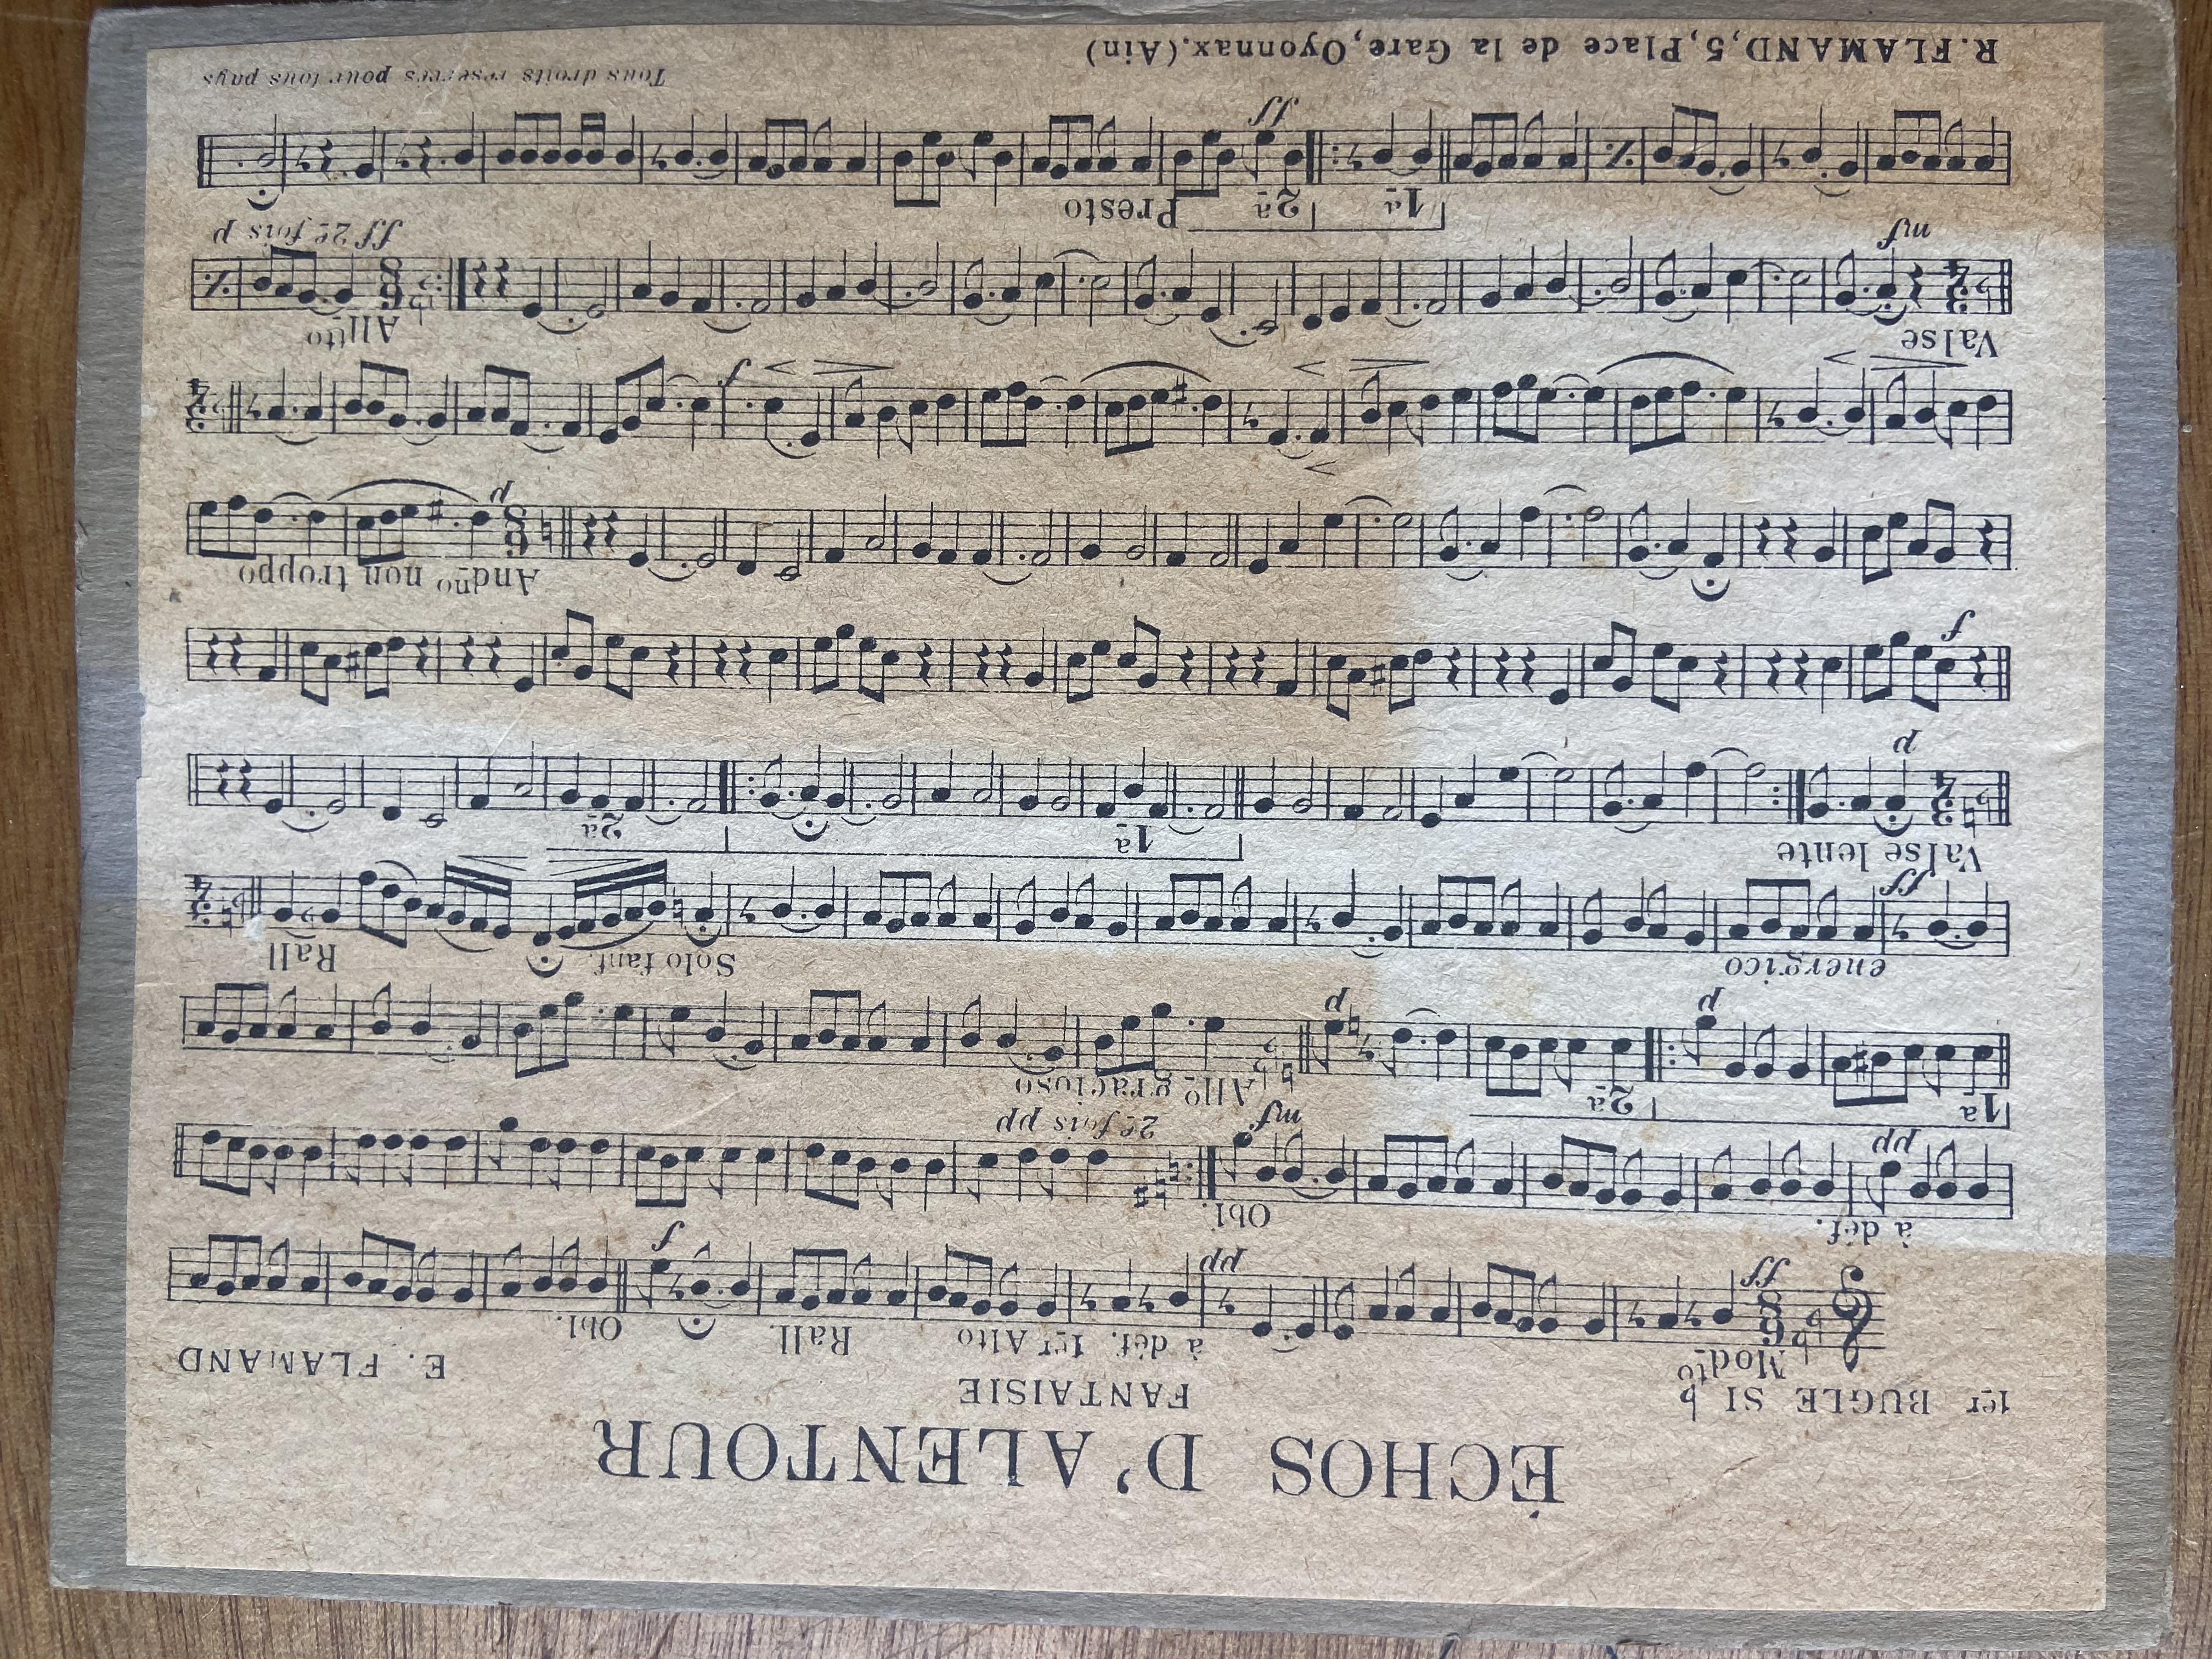 ÉCHOS D'ALENTOUR
FANTAISIE
1er BUGLE SI b E. FLAMAND
Modto à déf. 1er Alto Rall. Obl.
ff pp f
à déf. Obl.
pp mf 2e fois pp
1a 2a Allo gracioso
p p
energico Solo fanf. Rall
ff
Valse lente 1a 2a
p
f
Andno non troppo
p
f
Valse Allto
mf ff 2e fois p
1a 2a Presto
ff
R. FLAMAND, 5, Place de la Gare, Oyonnax. (Ain) Tous droits réservés pour tous pays